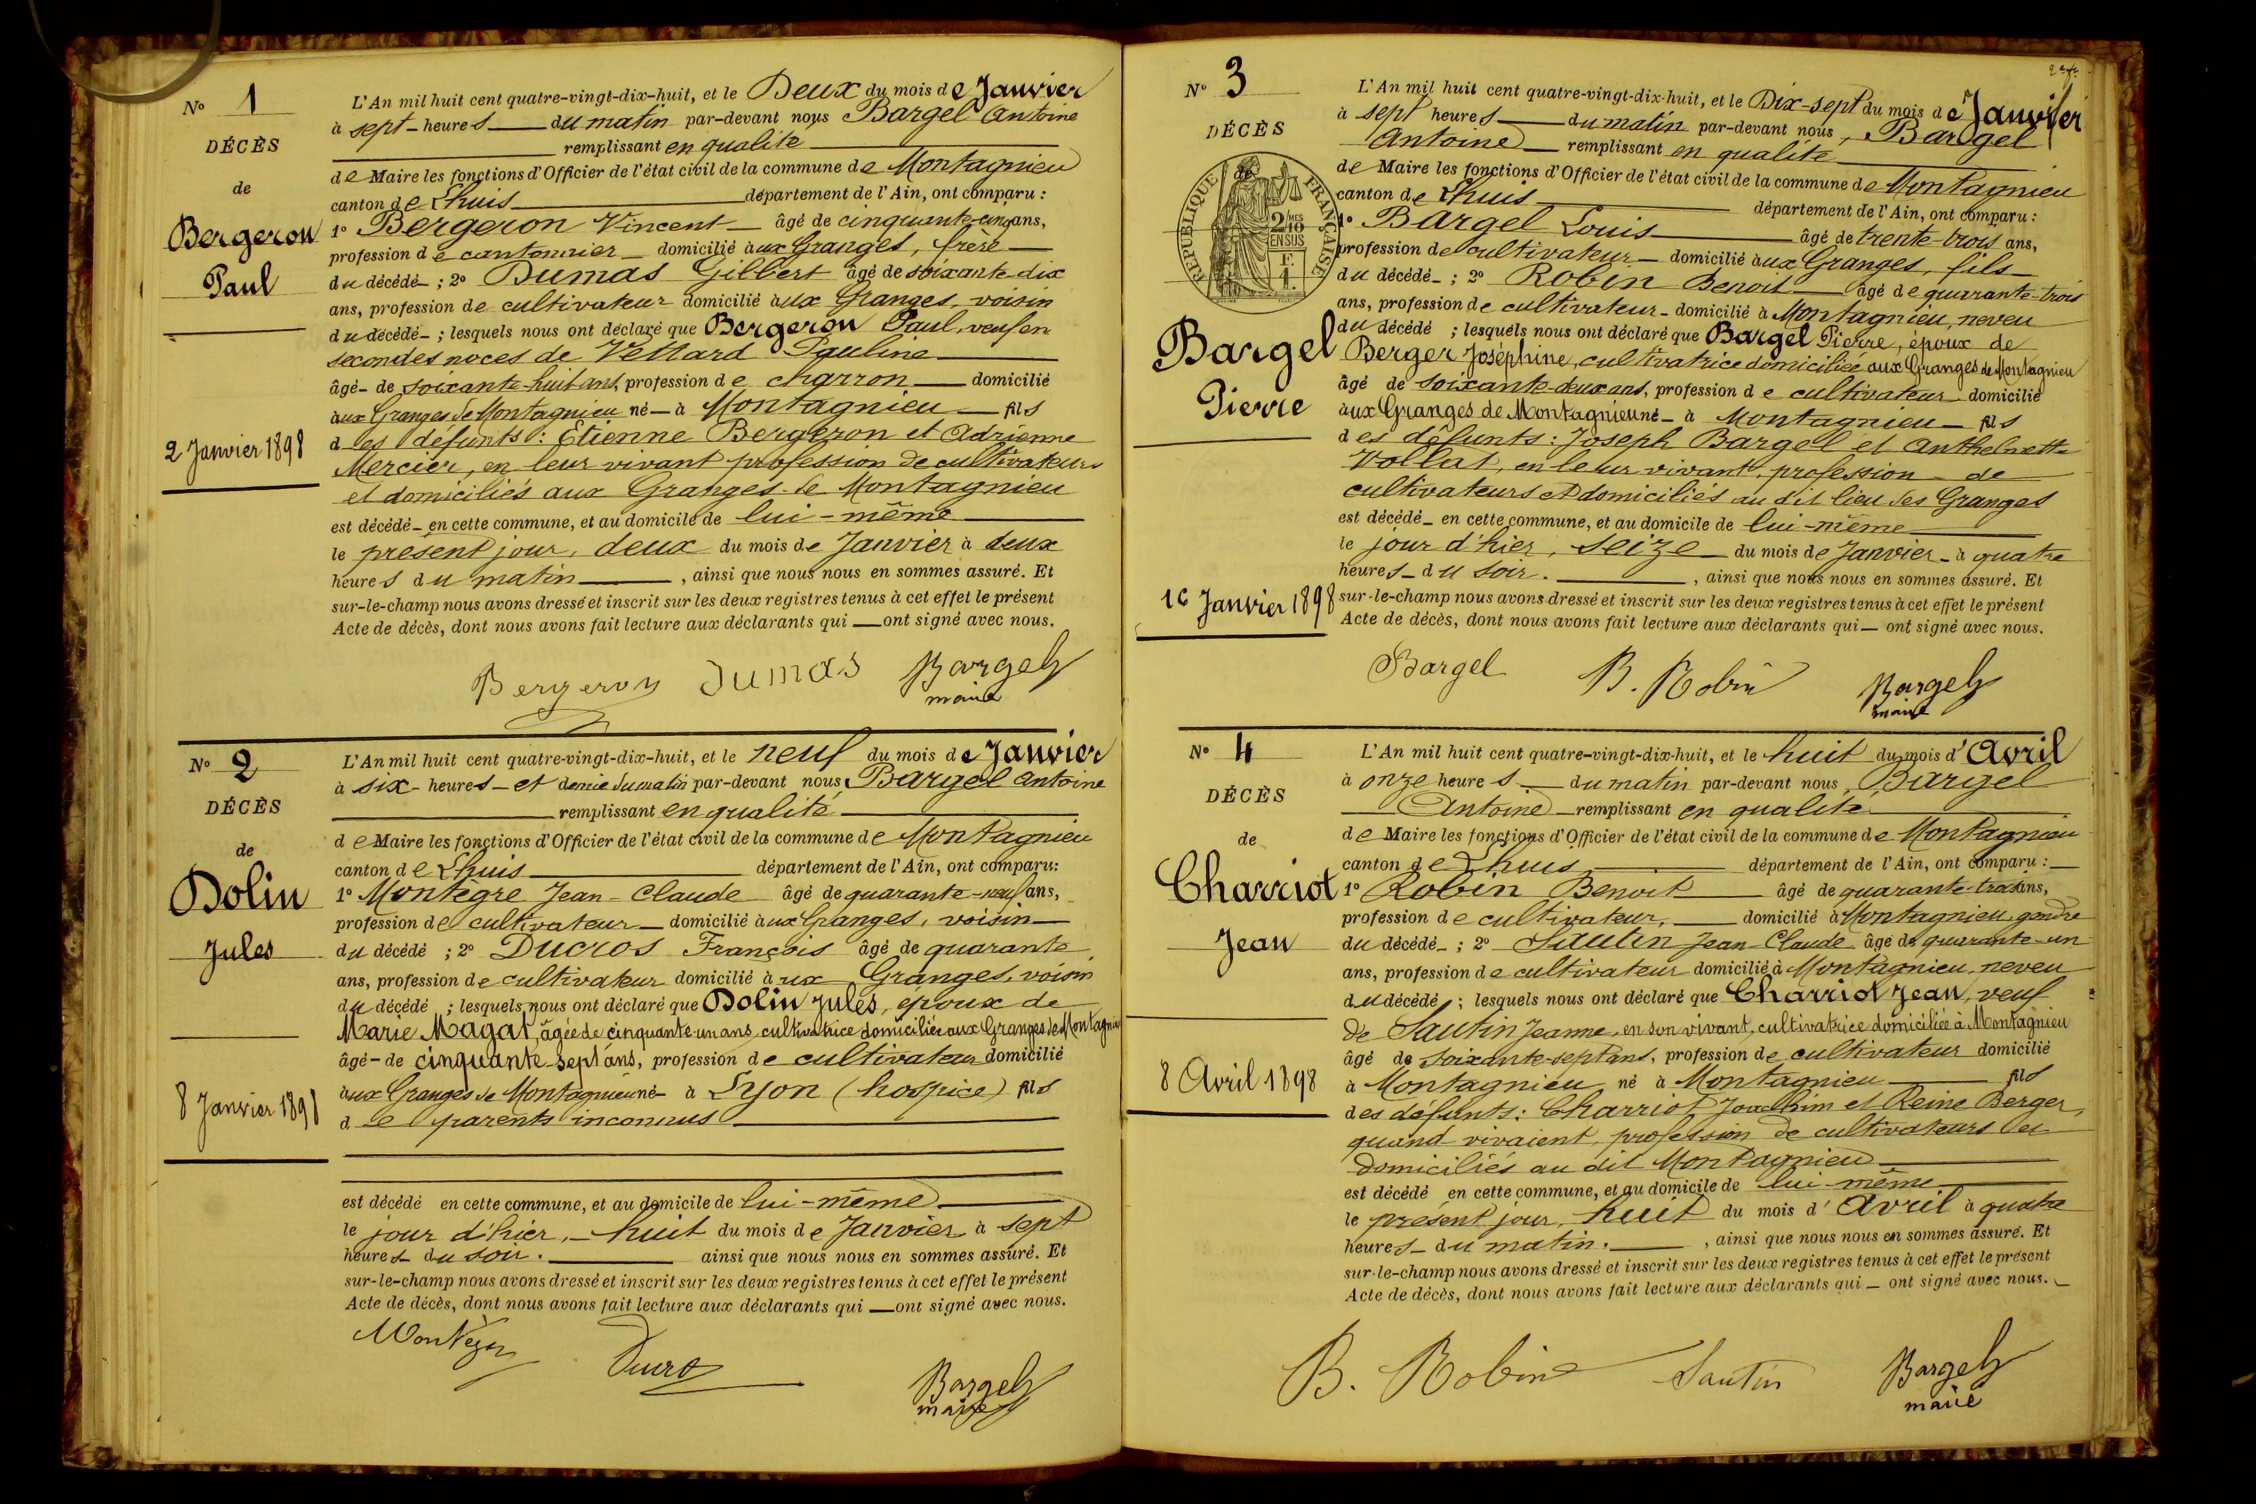 N° 1
DÉCÈS
de
Bergeron
Paul
2 Janvier 1898
L'An mil huit cent quatre-vingt-dix-huit, et le Deux du mois de Janvier
à sept - heures du matin par-devant nous Bargel Antoine
remplissant en qualité
de Maire les fonctions d'Officier de l'état civil de la commune de Montagnieu
canton de Lhuis département de l'Ain, ont comparu :
1° Bergeron Vincent âgé de cinquante-cinq ans,
profession de cantonnier domicilié aux Granges, frère
du décédé ; 2° Dumas Gilbert âgé de soixante-dix
ans, profession de cultivateur domicilié aux Granges, voisin
du décédé ; lesquels nous ont déclaré que Bergeron Paul, veuf en
secondes noces de Vettard Pauline
âgé de soixante-huit ans, profession de charron domicilié
aux Granges de Montagnieu né à Montagnieu fils
des défunts : Etienne Bergeron et Adrienne
Mercier, en leur vivant profession de cultivateurs
et domiciliés aux Granges de Montagnieu
est décédé en cette commune, et au domicile de lui-même
le présent jour, deux du mois de Janvier à deux
heures du matin , ainsi que nous nous en sommes assuré. Et
sur-le-champ nous avons dressé et inscrit sur les deux registres tenus à cet effet le présent
Acte de décès, dont nous avons fait lecture aux déclarants qui ont signé avec nous.
Bergeron Dumas Bargel
maire
N° 2
DÉCÈS
de
Dolin
Jules
8 Janvier 1898
L'An mil huit cent quatre-vingt-dix-huit, et le neuf du mois de Janvier
à six - heures - et demie du matin par-devant nous Bargel Antoine
remplissant en qualité
de Maire les fonctions d'Officier de l'état civil de la commune de Montagnieu
canton de Lhuis département de l'Ain, ont comparu:
1° Montegre Jean-Claude âgé de quarante-neuf ans,
profession de cultivateur domicilié aux Granges, voisin
du décédé ; 2° Ducros François âgé de quarante
ans, profession de cultivateur domicilié aux Granges, voisin
du décédé ; lesquels nous ont déclaré que Dolin Jules, époux de
Marie Magat, âgée de cinquante-un ans, cultivatrice domiciliée aux Granges de Montagnieu
âgé - de cinquante-sept ans, profession de cultivateur domicilié
aux Granges de Montagnieu né à Lyon (hospice) fils
de parents inconnus
est décédé en cette commune, et au domicile de lui-même
le jour d'hier, huit du mois de Janvier à sept
heures du soir. ainsi que nous nous en sommes assuré. Et
sur-le-champ nous avons dressé et inscrit sur les deux registres tenus à cet effet le présent
Acte de décès, dont nous avons fait lecture aux déclarants qui ont signé avec nous.
Ducros
Bargel
maire
N° 3
DÉCÈS
de
RÉPUBLIQUE FRANÇAISE
2/10 MES
EN SUS
F.
1.
Bargel
Pierre
16 Janvier 1898
L'An mil huit cent quatre-vingt-dix-huit, et le Dix-sept du mois de Janvier
à sept heures du matin par-devant nous, Bargel
Antoine remplissant en qualité
de Maire les fonctions d'Officier de l'état civil de la commune de Montagnieu
canton de Lhuis département de l'Ain, ont comparu :
1° Bargel Louis âgé de trente-trois ans,
profession de cultivateur domicilié aux Granges, fils
du décédé ; 2° Robin Benoit âgé de quarante-trois
ans, profession de cultivateur domicilié à Montagnieu, neveu
du décédé ; lesquels nous ont déclaré que Bargel Pierre, époux de
Berger Joséphine, cultivatrice domiciliée aux Granges de Montagnieu
âgé de soixante-deux ans, profession de cultivateur domicilié
aux Granges de Montagnieu né à Montagnieu fils
des défunts : Joseph Bargel et Anthelmette
Vollat, en leur vivant, profession de
cultivateurs et domiciliés au dit lieu des Granges
est décédé en cette commune, et au domicile de lui-même
le jour d'hier, seize du mois de Janvier à quatre
heures du soir. , ainsi que nous nous en sommes assuré. Et
sur-le-champ nous avons dressé et inscrit sur les deux registres tenus à cet effet le présent
Acte de décès, dont nous avons fait lecture aux déclarants qui ont signé avec nous.
Bargel B. Robin Bargel
maire
N° 4
DÉCÈS
de
Charriot
Jean
8 Avril 1898
L'An mil huit cent quatre-vingt-dix-huit, et le huit du mois d'Avril
à onze heures du matin par-devant nous, Bargel
Antoine remplissant en qualité
de Maire les fonctions d'Officier de l'état civil de la commune de Montagnieu
canton de Lhuis département de l'Ain, ont comparu :
1° Robin Benoit âgé de quarante-trois ans,
profession de cultivateur, domicilié à Montagnieu, gendre
du décédé ; 2° Sautin Jean-Claude âgé de quarante-un
ans, profession de cultivateur domicilié à Montagnieu, neveu
du décédé ; lesquels nous ont déclaré que Charriot Jean, veuf
de Sautin Jeanne, en son vivant, cultivatrice domiciliée à Montagnieu
âgé de soixante-sept ans, profession de cultivateur domicilié
à Montagnieu né à Montagnieu fils
des défunts : Charriot Joachim et Reine Berger,
quand vivaient, profession de cultivateurs et
domiciliés au dit Montagnieu
est décédé en cette commune, et au domicile de lui-même
le présent jour, huit du mois d'Avril à quatre
heures du matin. , ainsi que nous nous en sommes assuré. Et
sur-le-champ nous avons dressé et inscrit sur les deux registres tenus à cet effet le présent
Acte de décès, dont nous avons fait lecture aux déclarants qui ont signé avec nous.
B. Robin Sautin Bargel
maire